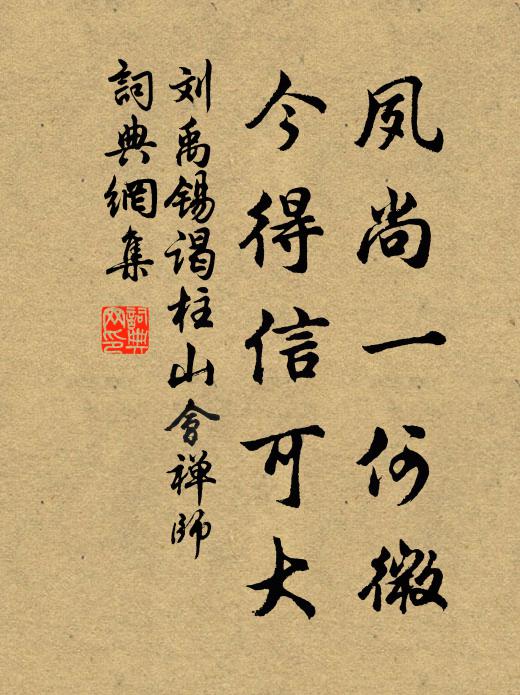 夙尚一何微
今得信可大
刘禹锡谒柱山会禅师
詞典網集
詞典网印